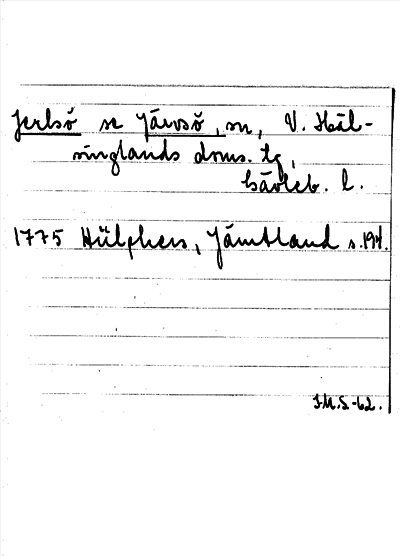 Jerlsö se Järvsö, sn, V. Häl-
singlands doms. tg,
Gävleb. l.
1775 Hülphers, Jämtland s. 194.
I.M.S-62.